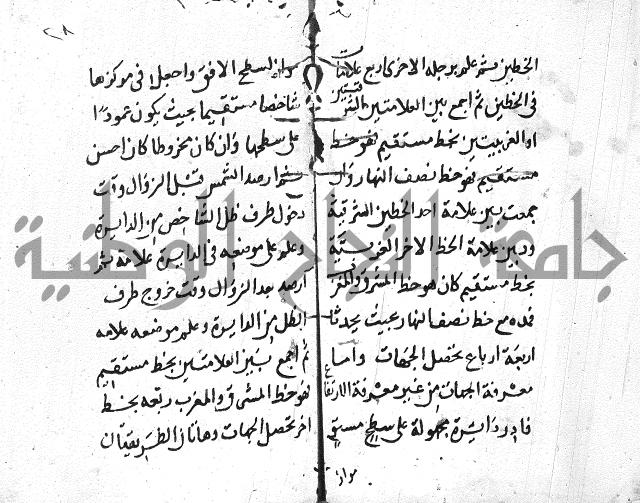 ٢٨
الخطين ثم علم برجله الاخرى اربع علامات
في الخطين ثم اجمع بين العلامتين الشرقيتين
او الغربيتين بخط مستقيم فهو خط
مستقيم فهو خط نصف النهار وان
جمعت بين علامة احد الخطين الشرقية
وبين علامة الخط الاخر الغربية
بخط مستقيم كان هو خط المشرق والمغرب
فده مع خط نصف النهار بحيث يحدثا
اربعة ارباع تحصل الجهات واما
معرفة الجهات من غير معرفة الارتفاع
فادر دائرة مجهولة على سطح مستوي
مواز
مواز لسطح الافق واجعل في مركزها
شاخصا مستقيما بحيث يكون عمودا
على سطحها وان كان مخروطا كان احسن
ثم ارصد الشمس قبل الزوال وقت
دخول طرف ظل الشاخص من الدايرة
وعلم على موضعه في الدايرة علامة ثم
ارصد بعد الزوال وقت خروج طرف
الظل من الدايرة وعلم موضعه علامه
ثم اجمع بين العلامتين بخط مستقيم
فهو خط المشرق والمغرب ربعه بخط
اخر تحصل الجهات وهاتان الطريقتان
جامعة النجاح الوطنية